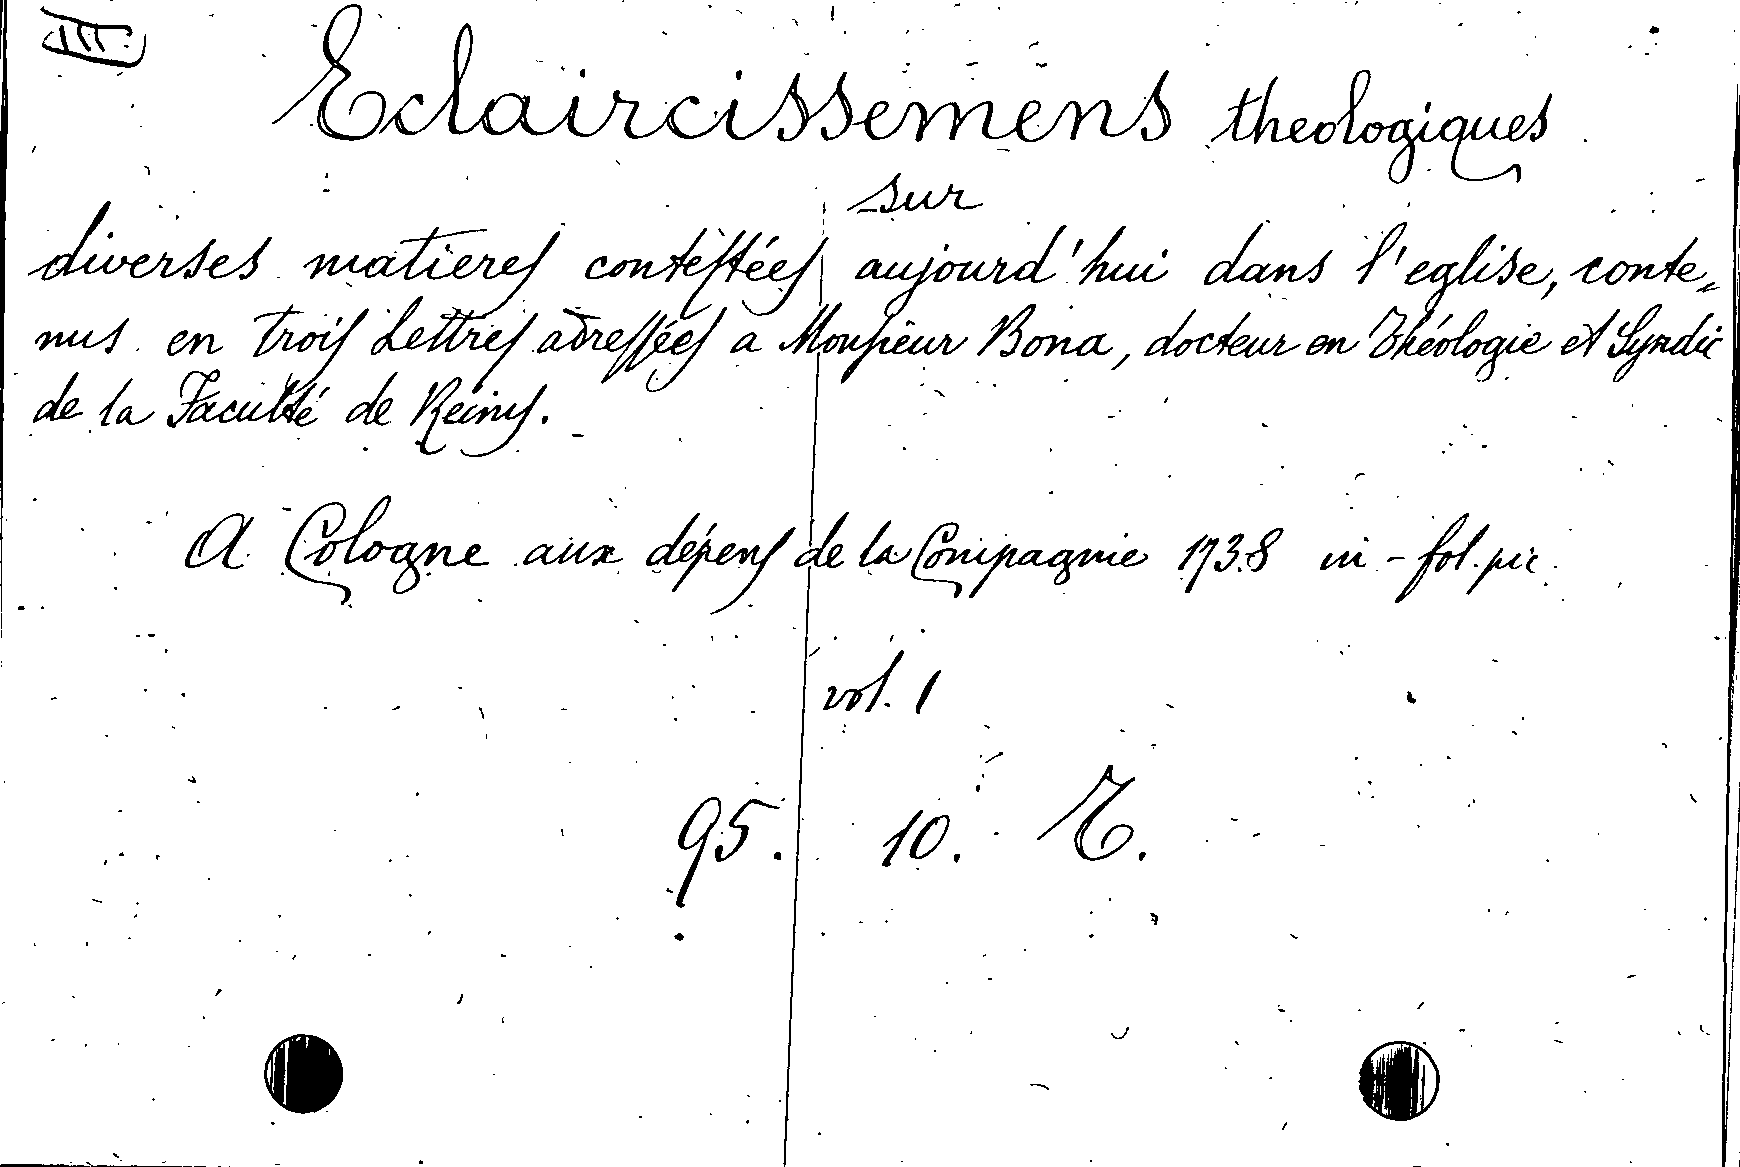 III.
Eclaircissemens theologiques
sur
diverses matieres contestées aujourd'hui dans l'eglise, conte„
nus en trois Lettres adressées a Monsieur Bona, docteur en Théologie et Syndic
de la Faculté de Reims.
A Cologne aux dépens de la Compagnie 1738 in-fol. pic.
vol. 1
95. 10. T.